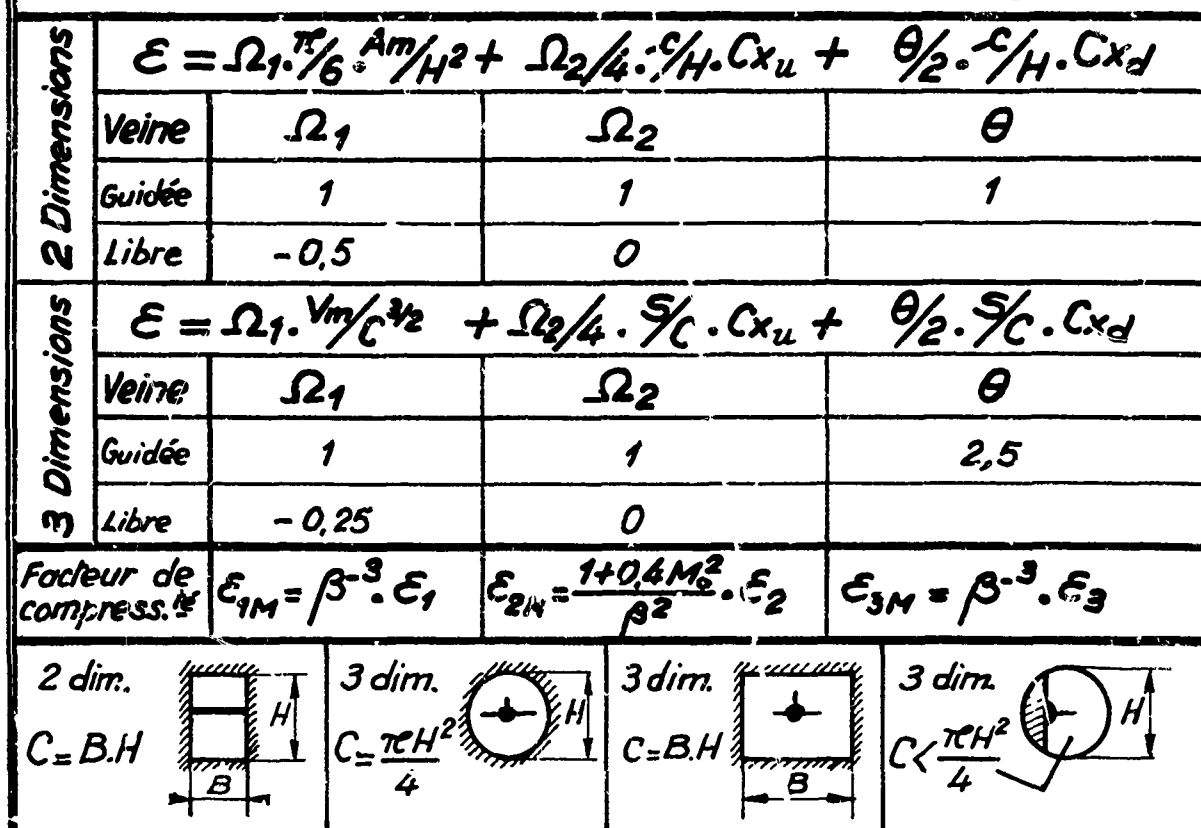 2 Dimensions
ε = Ω1.π/6.Am/H² + Ω2/4.c/H.Cxu + θ/2.c/H.Cxd
Veine Ω1 Ω2 θ
Guidée 1 1 1
Libre -0,5 0
3 Dimensions
ε = Ω1.Vm/C^3/2 + Ω2/4.S/C.Cxu + θ/2.S/C.Cxd
Veine Ω1 Ω2 θ
Guidée 1 1 2,5
Libre -0,25 0
Facteur de
compress.té
ε1M = β⁻³.ε1
ε2M = 1+0,4M₀²/β².ε2
ε3M = β⁻³.ε3
2 dim.
H
C = B.H
B
3 dim.
H
C = πH²/4
3 dim.
H
C = B.H
B
3 dim.
H
C < πH²/4